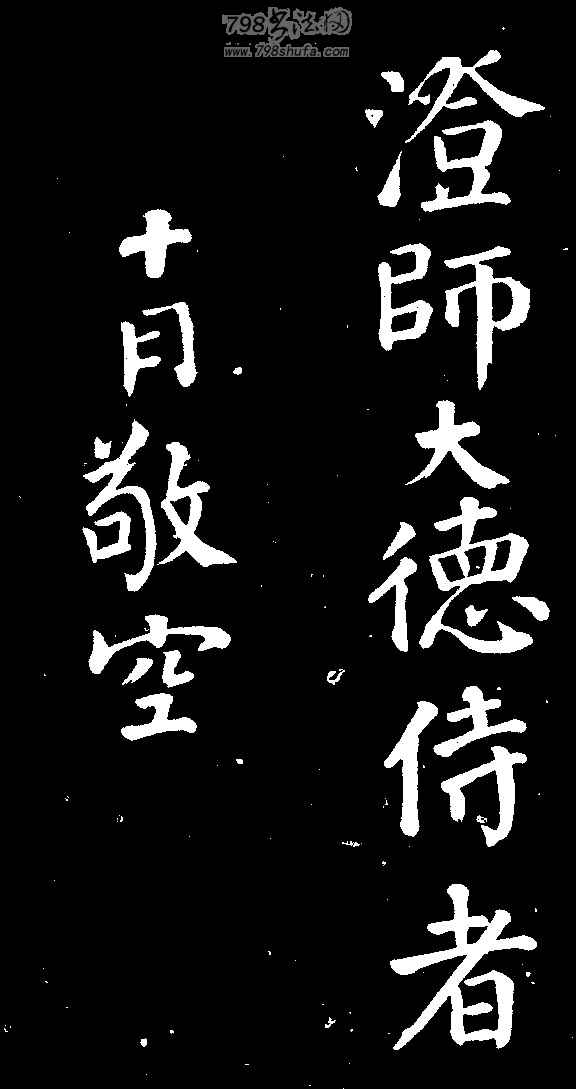 798书法网
www.798shufa.com
澄師大德侍者
十月敬空